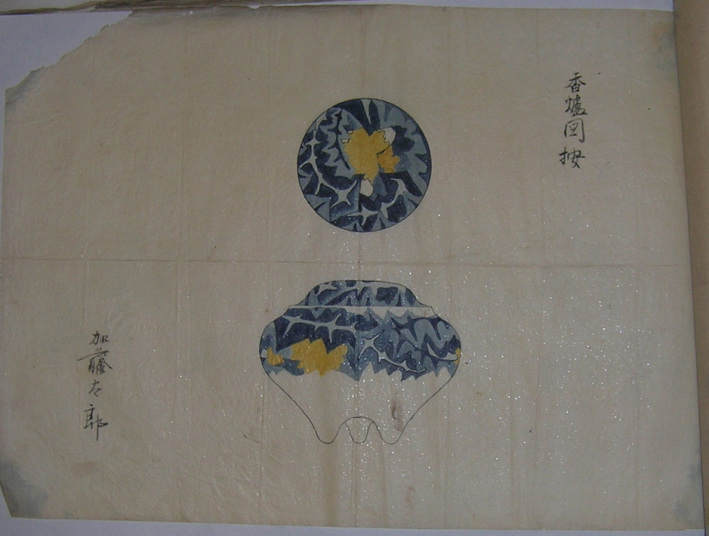 香爐図按
加藤太郎